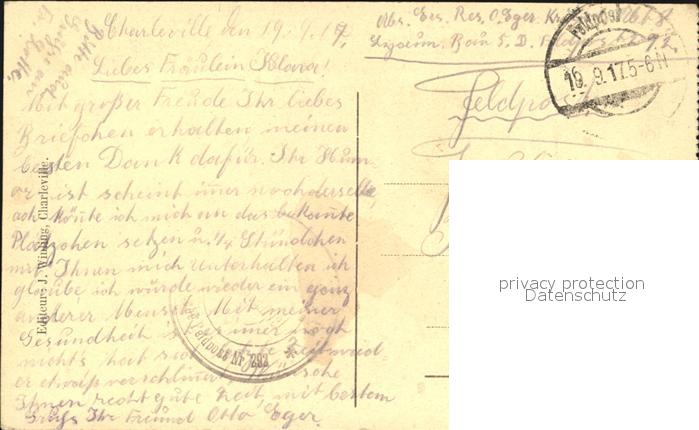 Charleville den 19. 9. 17.
Liebes Fräulein Klara!
Mit großer Freude Ihr liebes
Briefchen erhalten meinen
besten Dank dafür. Ihr Hum
or ist scheint imer noch derselbe,
ach könte ich mich an das bekante
Pläzchen setzen u. 1/4 Stündchen
mit Ihnen mich unterhalten ich
glaube ich würde wieder ein ganz
anderer Mensch. Mit meiner
Gesundheit ist imer noch
nichts hat sich
er etwas verschlimert, wünsche
Ihnen recht gute Zeit, mit bestem
Gruß Ihr Freund Otto Eger.
Bitte auch
Grüße an
Abs. Ges. Res. O. Eger.
Feldpost
Feldpost
19. 9. 17. 5-6 N
Feldpost Nr 292
Editeur: J. Winling, Charleville.
privacy protection
Datenschutz